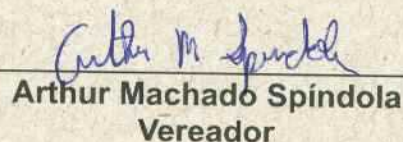 Arthur M Spindola
Arthur Machado Spíndola
Vereador